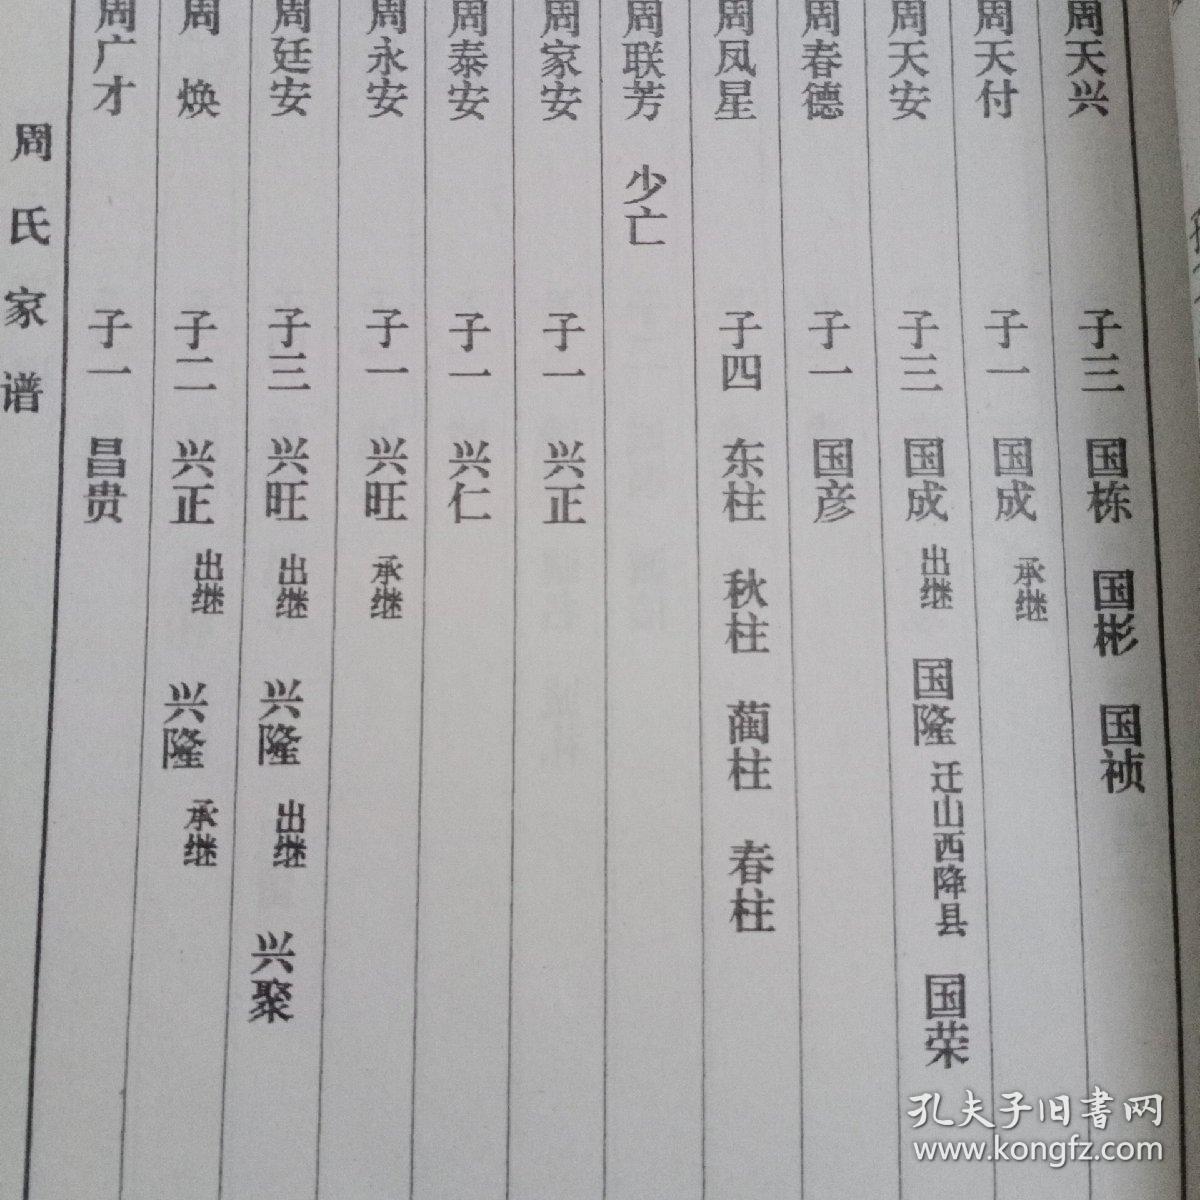 周天兴 子三 国栋 国彬 国祯
周天付 子一 国成 承继
周天安 子三 国成 出继 国隆 迁山西降县 国荣
周春德 子一 国彦
周凤星 子四 东柱 秋柱 蔺柱 春柱
周联芳 少亡
周家安 子一 兴正
周泰安 子一 兴仁
周永安 子一 兴旺 承继
周廷安 子三 兴旺 出继 兴隆 出继 兴聚
周焕 子二 兴正 出继 兴隆 承继
周广才 子一 昌贵
周氏家谱
孔夫子旧書网
www.kongfz.com